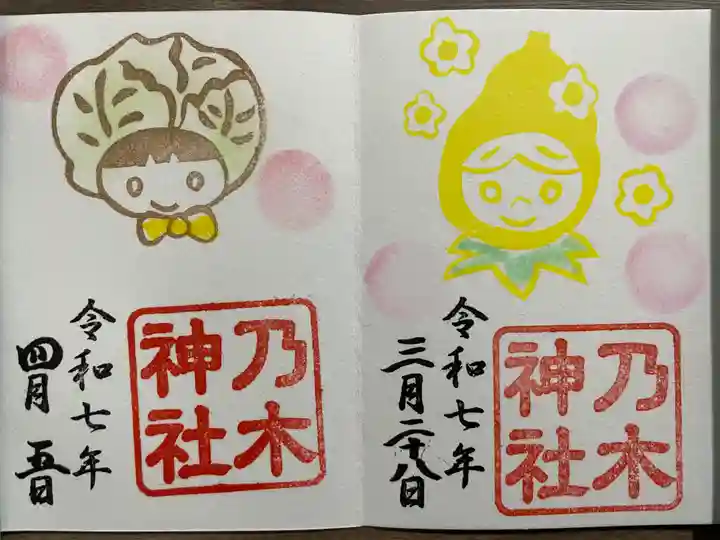 令和七年
三月二十八日
乃木
神社
令和七年
四月五日
乃木
神社